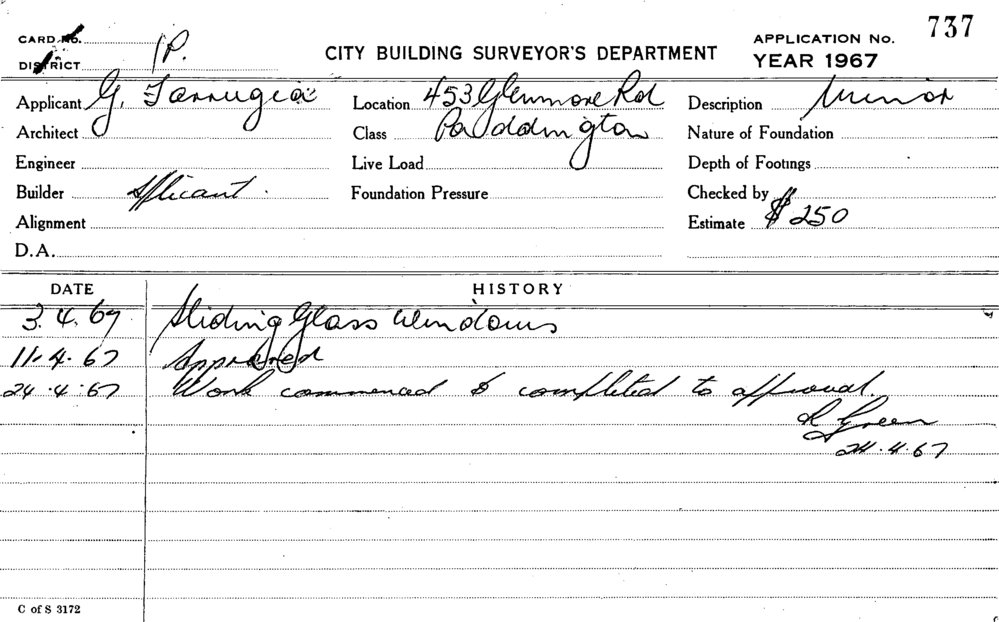 737
CARD No. 1P.
DISTRICT
CITY BUILDING SURVEYOR'S DEPARTMENT
APPLICATION No.
YEAR 1967
Applicant G. Farrugia Location 453 Glenmore Rd Description Minor
Architect Class Paddington Nature of Foundation
Engineer Live Load Depth of Footings
Builder Applicant. Foundation Pressure Checked by
Alignment Estimate $250
D.A.
DATE HISTORY
3.4.67 Sliding Glass Windows
11.4.67 Approved
24.4.67 Work commenced & completed to approval.
R Green
24.4.67
C of S 3172